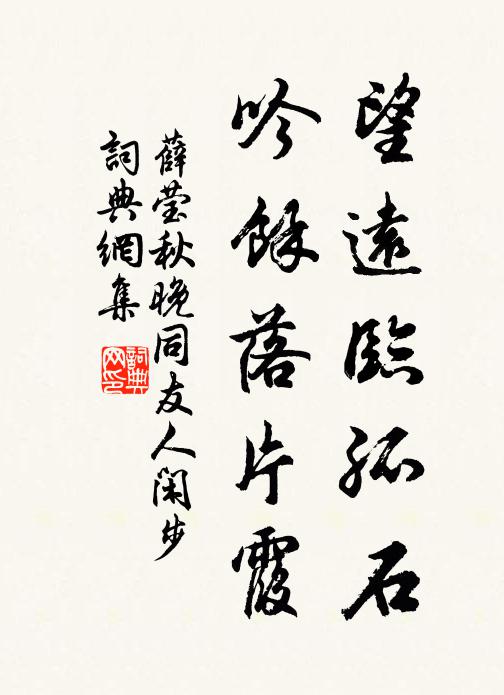 望遠臨孤石
吟餘落片霞
薛瑩秋晚同友人閑步
詞典網集
詞典网印